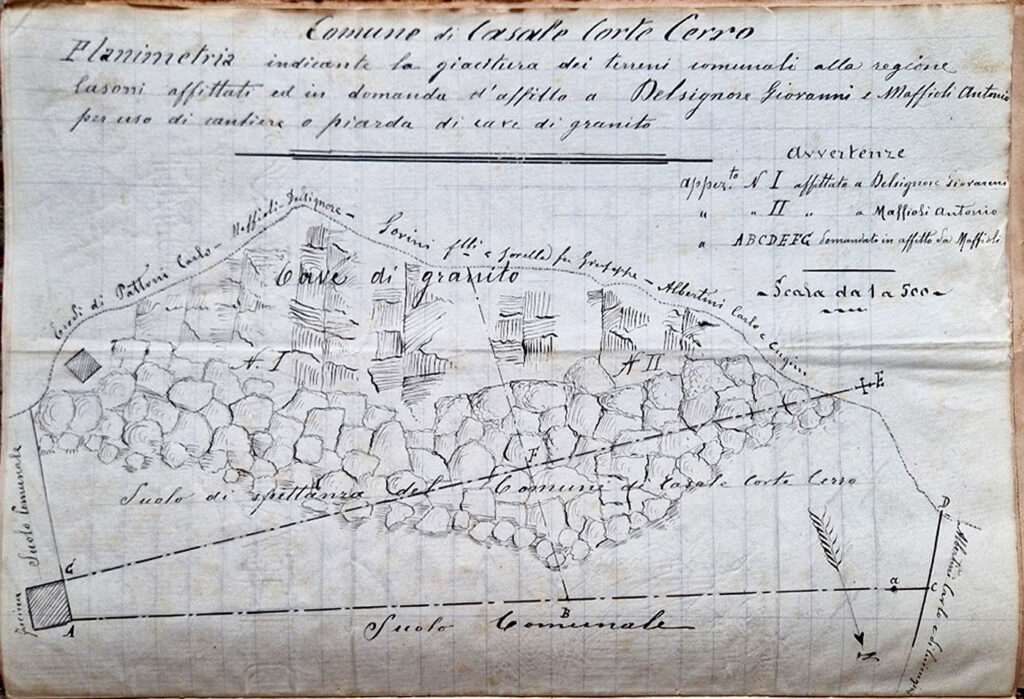 Comune di Casale Corte Cerro
Planimetria indicante la giacitura dei terreni comunali alla regione
Lusoni affittati ed in domanda d'affitto a Delsignore Giovanni e Maffioli Antonio
per uso di cantiere o piarda di cave di granito
Avvertenze
Appez.to N I affittato a Delsignore Giovanni
" " II " a Maffioli Antonio
" ABCDEFG domandato in affitto da Maffioli
Scala da 1 a 500
Eredi di Pattoni Carlo - Maffioli-Delsignore -
Lorini flli e sorelle fu Giuseppe - Albertini Carlo e Cugini
Cave di granito
N. I
N II
E
F
Suolo di spettanza del Comune di Casale Corte Cerro
Suolo Comunale
G
D
a
C
A
B
Suolo Comunale
Fucina
N
Albertini Carlo e